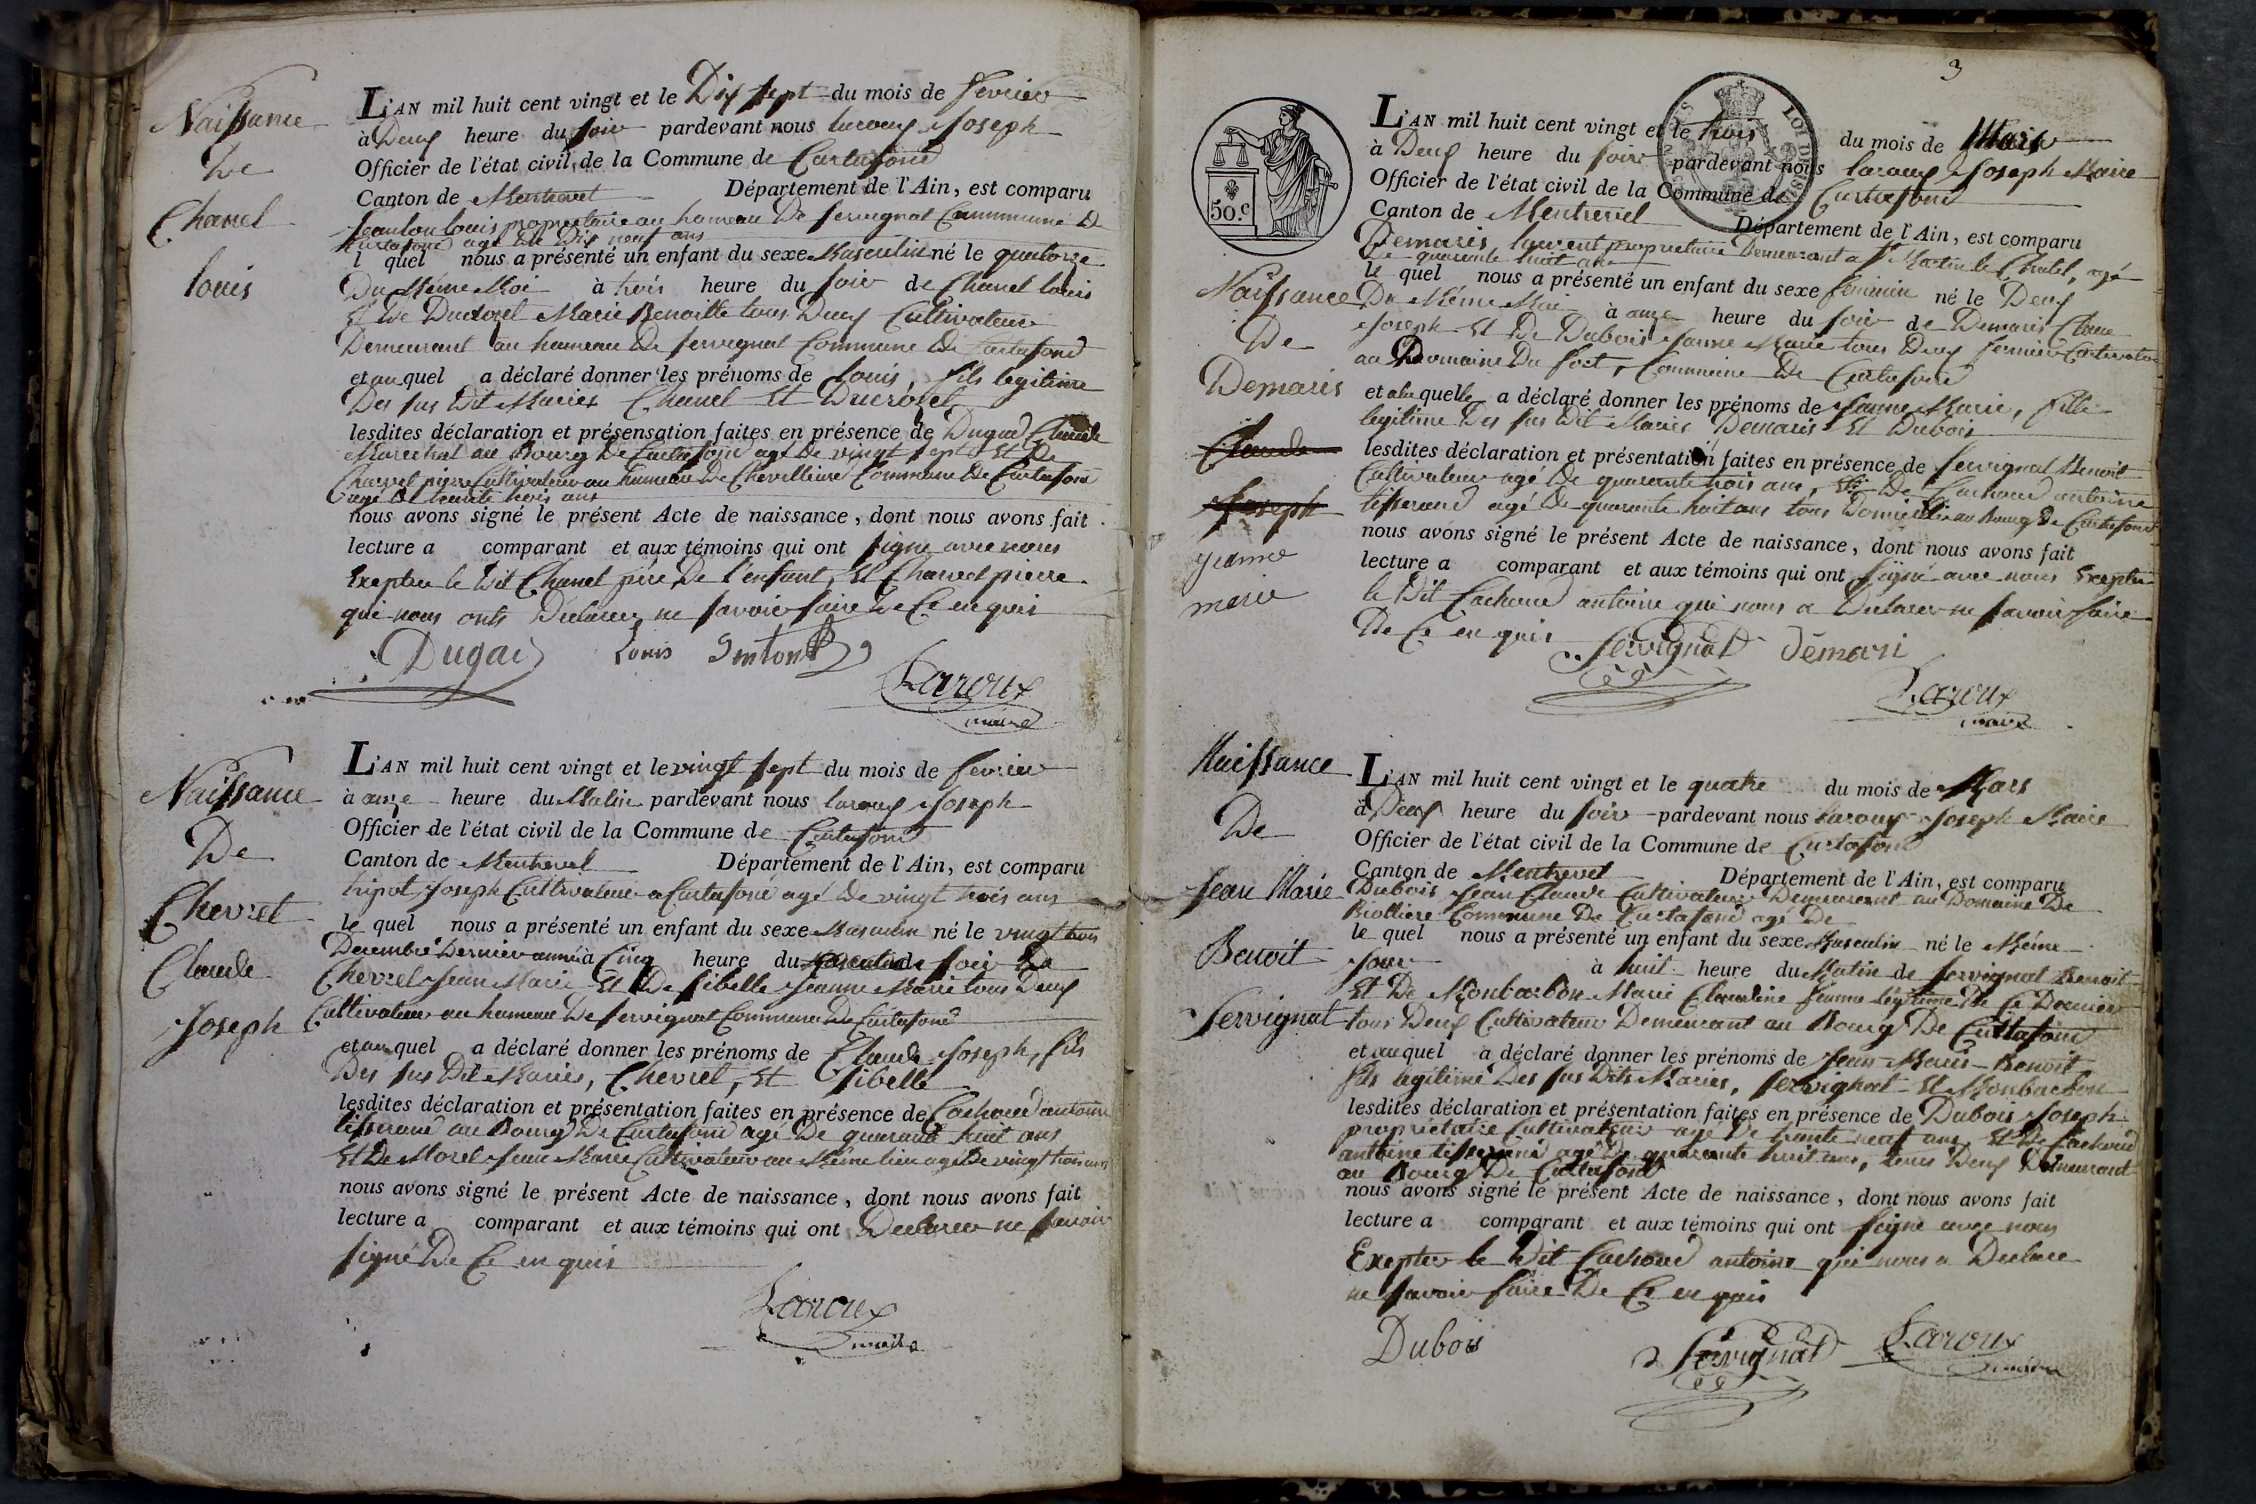 Naissance
De
Chanel
louis
L'AN mil huit cent vingt et le Dix sept du mois de fevrier
à Deux heure du soir pardevant nous laroux Joseph
Officier de l'état civil de la Commune de Curtafond
Canton de Montrevel Département de l'Ain, est comparu
louis propriétaire au hameau De servignat Commune De
Curtafond agé De Dix neuf ans
l quel nous a présenté un enfant du sexe Masculin né le quatorze
Du Même Moi à trois heure du soir de Chanel louis
Et De Marie Benoitte tous Deux Cultivateur
Demeurant au hameau De servignat Commune De Curtafond
et au quel a déclaré donner les prénoms de louis, fils legitime
Des sus Dit Mariés Chanel Et
lesdites déclaration et présensation faites en présence de Dugad Claude
Marechal au Bourg De Curtafond agé De vingt sept Et De
Charvet pierre Cultivateur au hameau De Commune De Curtafond
agé De trente trois ans
nous avons signé le présent Acte de naissance, dont nous avons fait
lecture a comparant et aux témoins qui ont signe avec nous
Exepter le Dit Chanel père De l'enfant, Et Charvet pierre
qui nous onts Declarer ne savoir faire De Ce enquis
Dugad Louis
Laroux
maire
Naissance
De
Chevret
Claude
Joseph
L'AN mil huit cent vingt et le vingt sept du mois de fevrier
à onze heure du Matin pardevant nous laroux Joseph
Officier de l'état civil de la Commune de Curtafond
Canton de Montrevel Département de l'Ain, est comparu
tripot Joseph Cultivateur a Curtafond agé De vingt trois ans
le quel nous a présenté un enfant du sexe Masculin né le vingt trois
Decembre Dernier année à Cinq heure du soir De
Chevret Jean Marie Et De sibelle Jeanne Marie tous Deux
Cultivateur au hameau De servignat Commune De Curtafond
et au quel a déclaré donner les prénoms de Claude Joseph, fils
Des sus Dit Mariés, Chevret, Et sibelle
lesdites déclaration et présentation faites en présence de Cachoud antoine
tisserand au Bourg De Curtafond agé De quarante huit ans
Et De Morel Jean Marie Cultivateur au Même lieu agé De vingt trois ans
nous avons signé le présent Acte de naissance, dont nous avons fait
lecture a comparant et aux témoins qui ont Declarer ne savoir
signé De Ce enquis
Laroux
maire
3
50.c
LOI DE
Naissance
De
Demaris
Claude
Joseph
jeanne
marie
L'AN mil huit cent vingt et le trois du mois de Mars
à Deux heure du soir pardevant nous laroux Joseph Maire
Officier de l'état civil de la Commune de Curtafond
Canton de Montrevel Département de l'Ain, est comparu
Demaris laurent propriétaire Demeurant a St Martin le Chatel, agé
De quarante huit ans
le quel nous a présenté un enfant du sexe feminin né le Deux
Du Même Moi à onze heure du soir de Demaris Claude
Joseph Et De Dubois Jeanne Marie tous Deux fermier Cultivateur
au Domaine Du fort, Commune De Curtafond
et a la quelle a déclaré donner les prénoms de Jeanne Marie, fille
legitime Des sus Dit Mariés Demaris Et Dubois
lesdites déclaration et présentation faites en présence de servignat Benoit
Cultivateur agé De quarante trois ans, Et De Cachoud antoine
tisserand agé De quarante huit ans tous Domicilié au Bourg De Curtafond
nous avons signé le présent Acte de naissance, dont nous avons fait
lecture a comparant et aux témoins qui ont signé avec nous Exepter
le Dit Cachoud antoine qui nous a Declarer ne savoir faire
De Ce enquis servignat demari
Laroux
maire
Naissance
De
Jean Marie
Benoit
Servignat
L'AN mil huit cent vingt et le quatre du mois de Mars
à Deux heure du soir pardevant nous laroux Joseph Maire
Officier de l'état civil de la Commune de Curtafond
Canton de Montrevel Département de l'Ain, est comparu
Dubois Jean Claude Cultivateur Demeurant au Domaine De
Biolliere Commune De Curtafond agé De
le quel nous a présenté un enfant du sexe Masculin né le Même
Jour à huit heure du Matin de servignat Benoit
Et De Monbarbon Marie Claudine femme légitime De Ce Dernier
tous Deux Cultivateur Demeurant au Bourg De Curtafond
et au quel a déclaré donner les prénoms de Jean Marie Benoit
fils legitime Des sus Dits Mariés, servignat Et Monbarbon
lesdites déclaration et présentation faites en présence de Dubois Joseph
propriétaire Cultivateur agé De trente neuf ans Et De Cachoud
antoine tisserand agé De quarante huit ans, tous Deux Demeurant
au Bourg De Curtafond
nous avons signé le présent Acte de naissance, dont nous avons fait
lecture a comparant et aux témoins qui ont signe avec nous
Exepter le Dit Cachoud antoine qui nous a Declare
ne savoir faire De Ce enquis
Dubois Servignat Laroux
maire